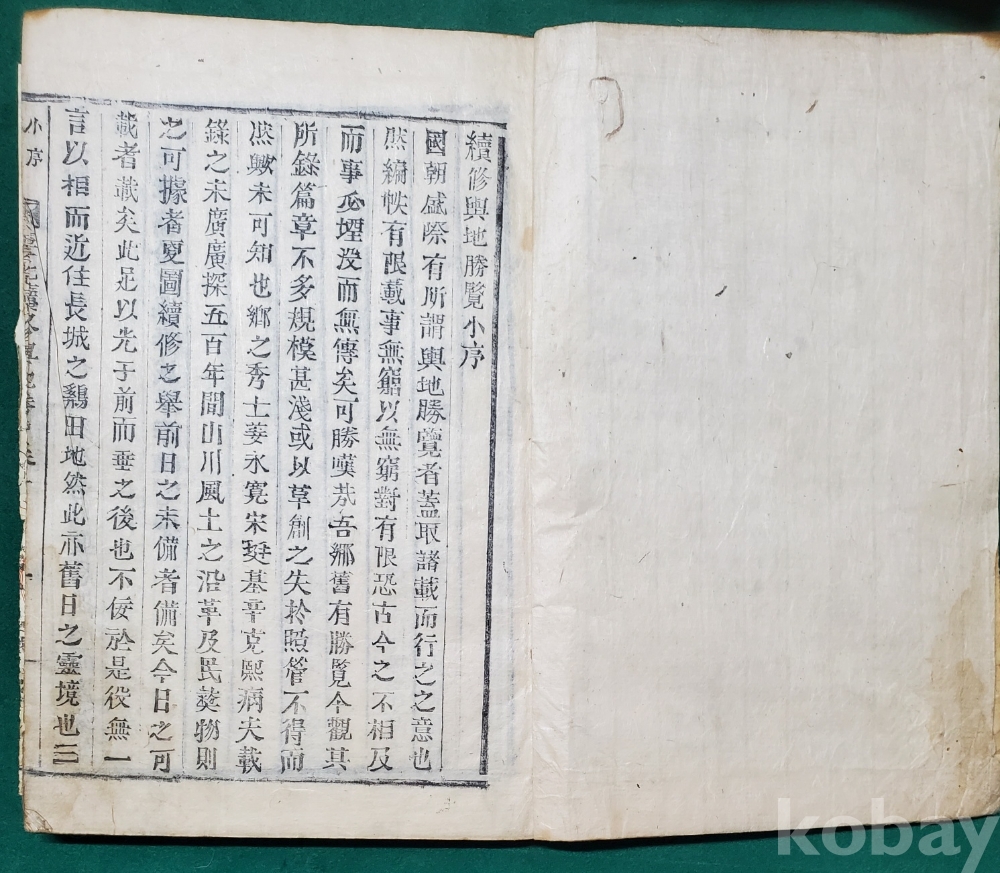 續修輿地勝覽小序
國朝盛際有所謂輿地勝覽者蓋取諸載而行之之意也
然編帙有限載事無窮以無窮對有限恐古今之不相及
而事必堙沒而無傳矣可勝嘆哉吾鄉舊有勝覽今觀其
所錄篇章不多規模甚淺或以草創之失於照管不得而
然歟未可知也鄉之秀士姜永寬宋珽基辛克熙病夫載
錄之未廣廣探五百年間山川風土之沿革及民彛物則
之可據者夏圖續修之舉前日之未備者備矣今日之可
載者載矣此足以先于前而垂之後也不佞於是役無一
言以相而近住長城之鷄田地然此亦舊日之靈境也三
小序
kobay